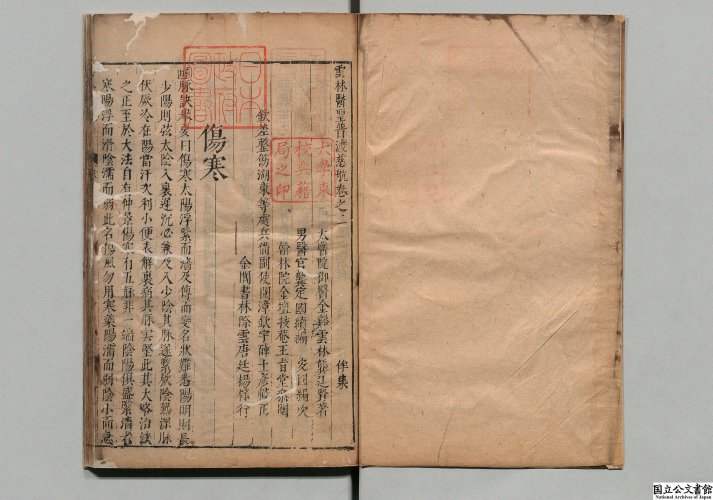 雲林醫聖普渡慈航卷之三
太醫院御醫金谿雲林龔廷賢著
男醫官龔定國續編 安國編次
翰林院金壇 王肯堂 閱
欽差整飭湖東等處兵備副使閩漳欽宇
金閶書林 雲唐廷揚梓行
傷寒
曰傷寒太陽浮緊而濇及傳而變名狀難悉陽明則長
少陽則弦太陰入裏遲沉必兼及入少陰其脉遂緊厥陰熱深脉
伏厥冷在陽當汗次利小便表解裏病其脉實堅此其大略治法
之正至於大法自有仲景傷寒有五脉非一端陰陽俱盛緊濇者
寒陽浮而滑陰濡而弱此名傷風勿用寒藥陽濡而弱陰小而急
日本
政府
圖書
大學東
校典籍
局之印
国立公文書館
National Archives of Japan